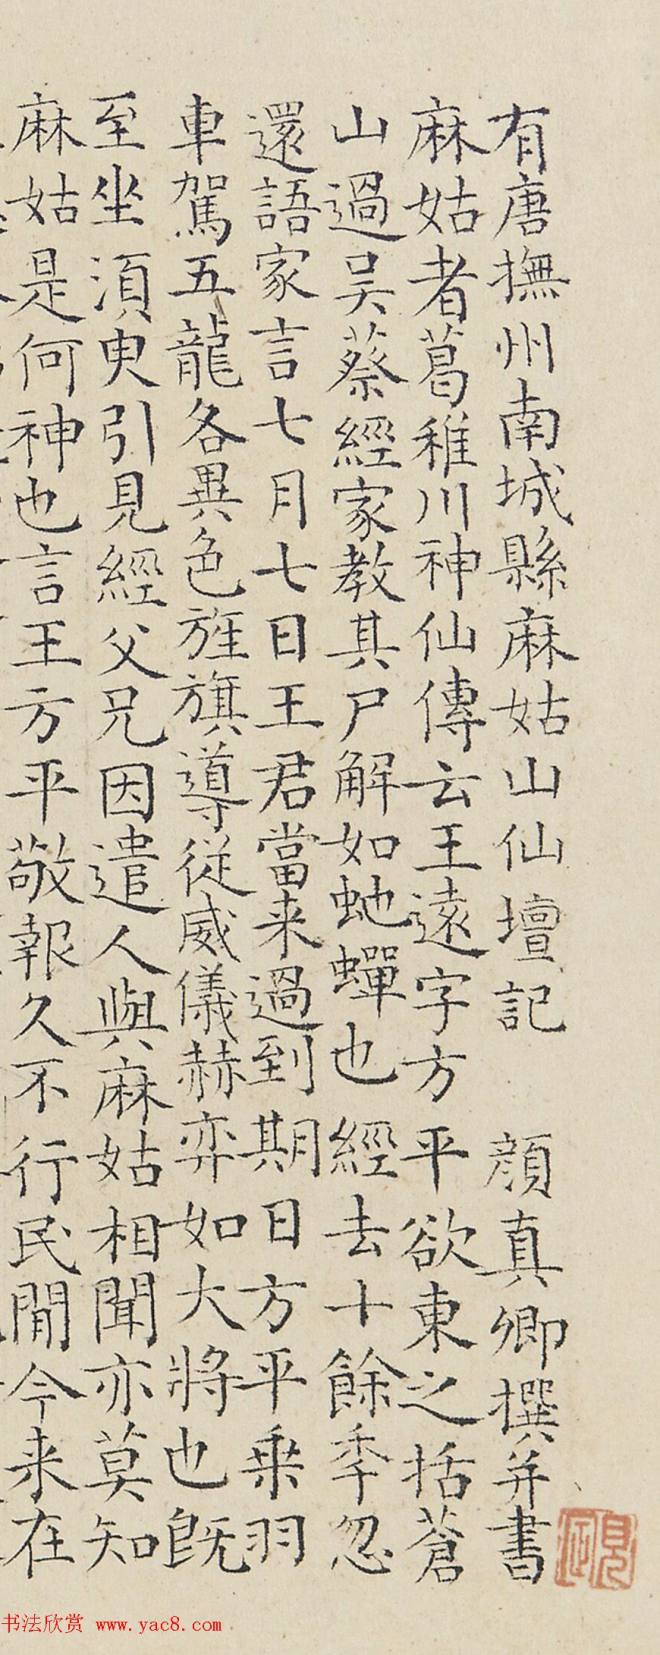 有唐撫州南城縣麻姑山仙壇記 顏真卿撰并書
麻姑者葛稚川神仙傳云王遠字方平欲東之括蒼
山過吴蔡經家教其尸解如虵蟬也經去十餘年忽
還語家言七月七日王君當来過到期日方平乗羽
車駕五龍各異色旌旗導從威儀赫弈如大將也既
至坐須臾引見經父兄因遣人與麻姑相聞亦莫知
麻姑是何神也言王方平敬報久不行民間今来在
书法欣赏 www.yac8.com